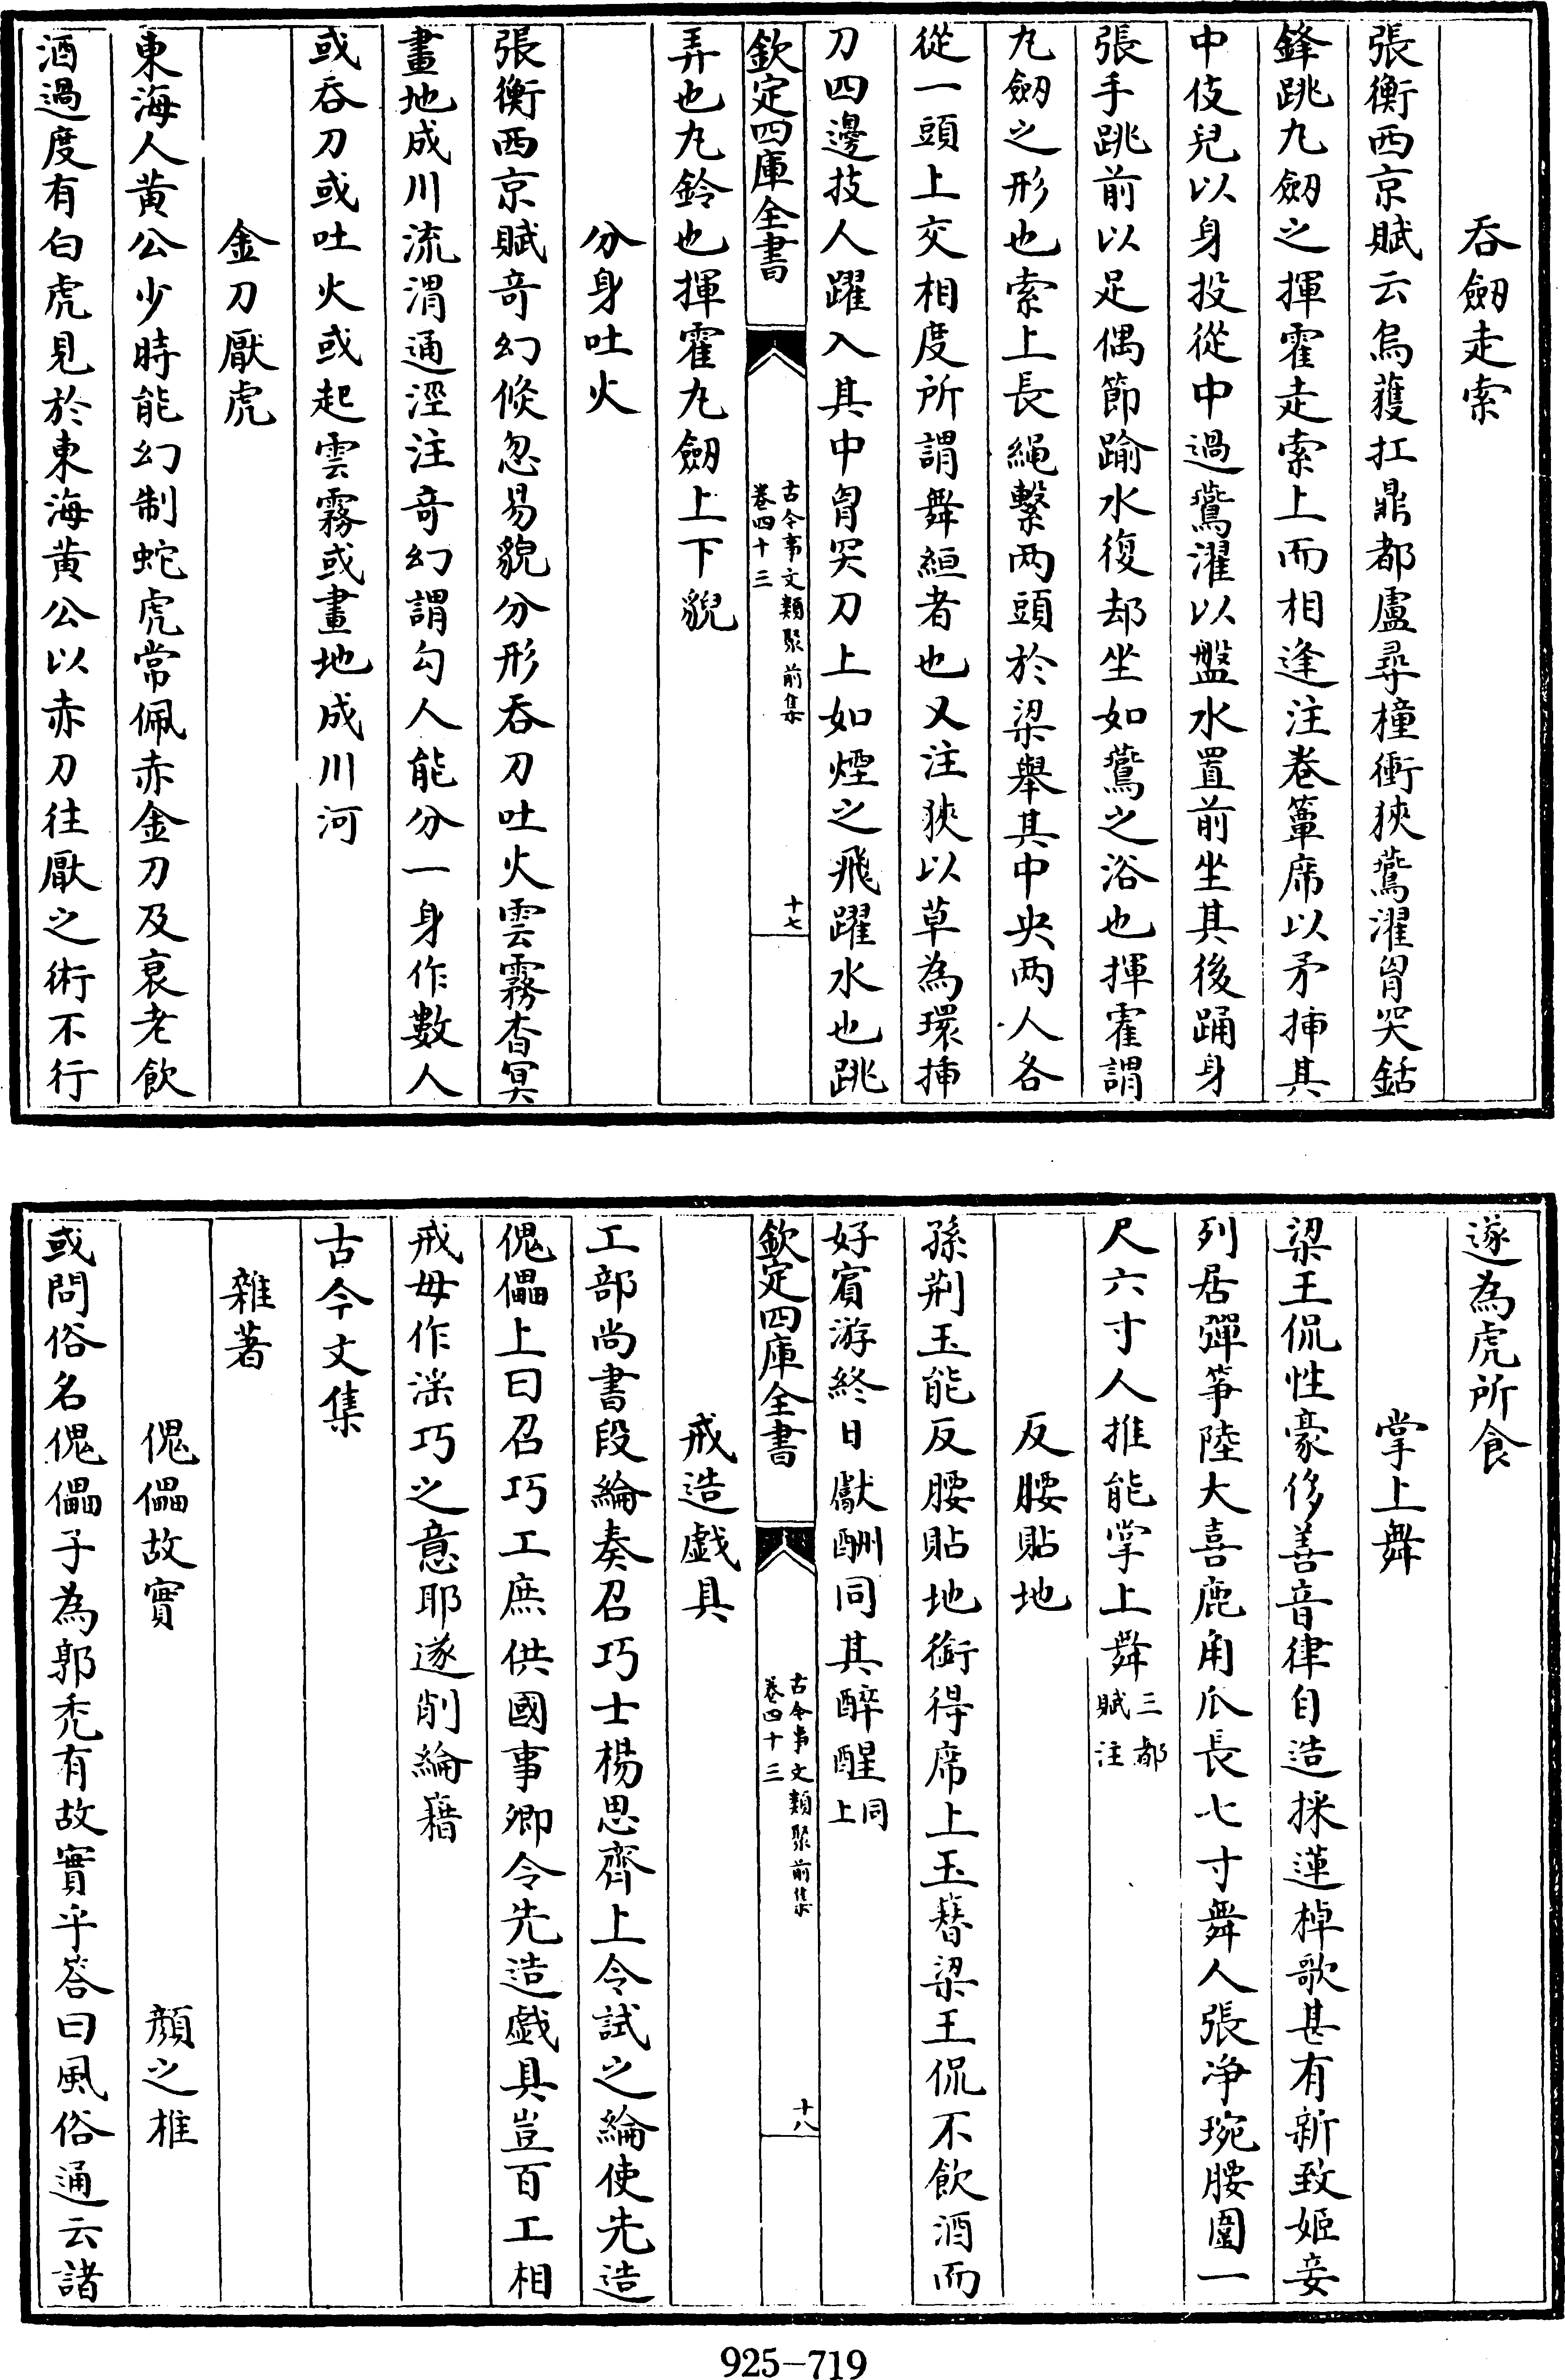 吞劒走索
張衡西京賦云烏獲扛鼎都盧尋橦衝狹鷰濯胷突銛
鋒跳丸劒之揮霍走索上而相逢注卷簟席以矛挿其
中伎兒以身投從中過鷰濯以盤水置前坐其後踊身
張手跳前以足偶節踰水復却坐如鷰之浴也揮霍謂
丸劒之形也索上長繩繫兩頭於梁舉其中央兩人各
從一頭上交相度所謂舞絙者也又注狹以草為環挿
刀四邊技人躍入其中胷突刀上如煙之飛躍水也跳
欽定四庫全書
古今事文類聚前集
卷四十三
十七
弄也丸鈴也揮霍丸劒上下貌
分身吐火
張衡西京賦竒幻倐忽易貌分形吞刀吐火雲霧杳冥
畫地成川流渭通涇注竒幻謂勾人能分一身作數人
或吞刀或吐火或起雲霧或畫地成川河
金刀厭虎
東海人黄公少時能幻制蛇虎常佩赤金刀及衰老飲
酒過度有白虎見於東海黄公以赤刀往厭之術不行
遂為虎所食
掌上舞
梁王侃性豪侈善音律自造採蓮棹歌甚有新致姬妾
列居彈筝陸大喜鹿角爪長七寸舞人張净琬腰圍一
尺六寸人推能掌上舞三都賦注
反腰貼地
孫荆玉能反腰貼地銜得席上玉簪梁王侃不飲酒而
好賓游終日獻酬同其醉醒同上
欽定四庫全書
古今事文類聚前集
卷四十三
十八
戒造戯具
工部尚書段綸奏召巧士楊思齊上令試之綸使先造
傀儡上曰召巧工庶供國事卿令先造戯具豈百工相
戒毋作滛巧之意耶遂削綸藉
古今文集
雜著
傀儡故實 顔之推
或問俗名傀儡子為郭秃有故實乎答曰風俗通云諸
925-719